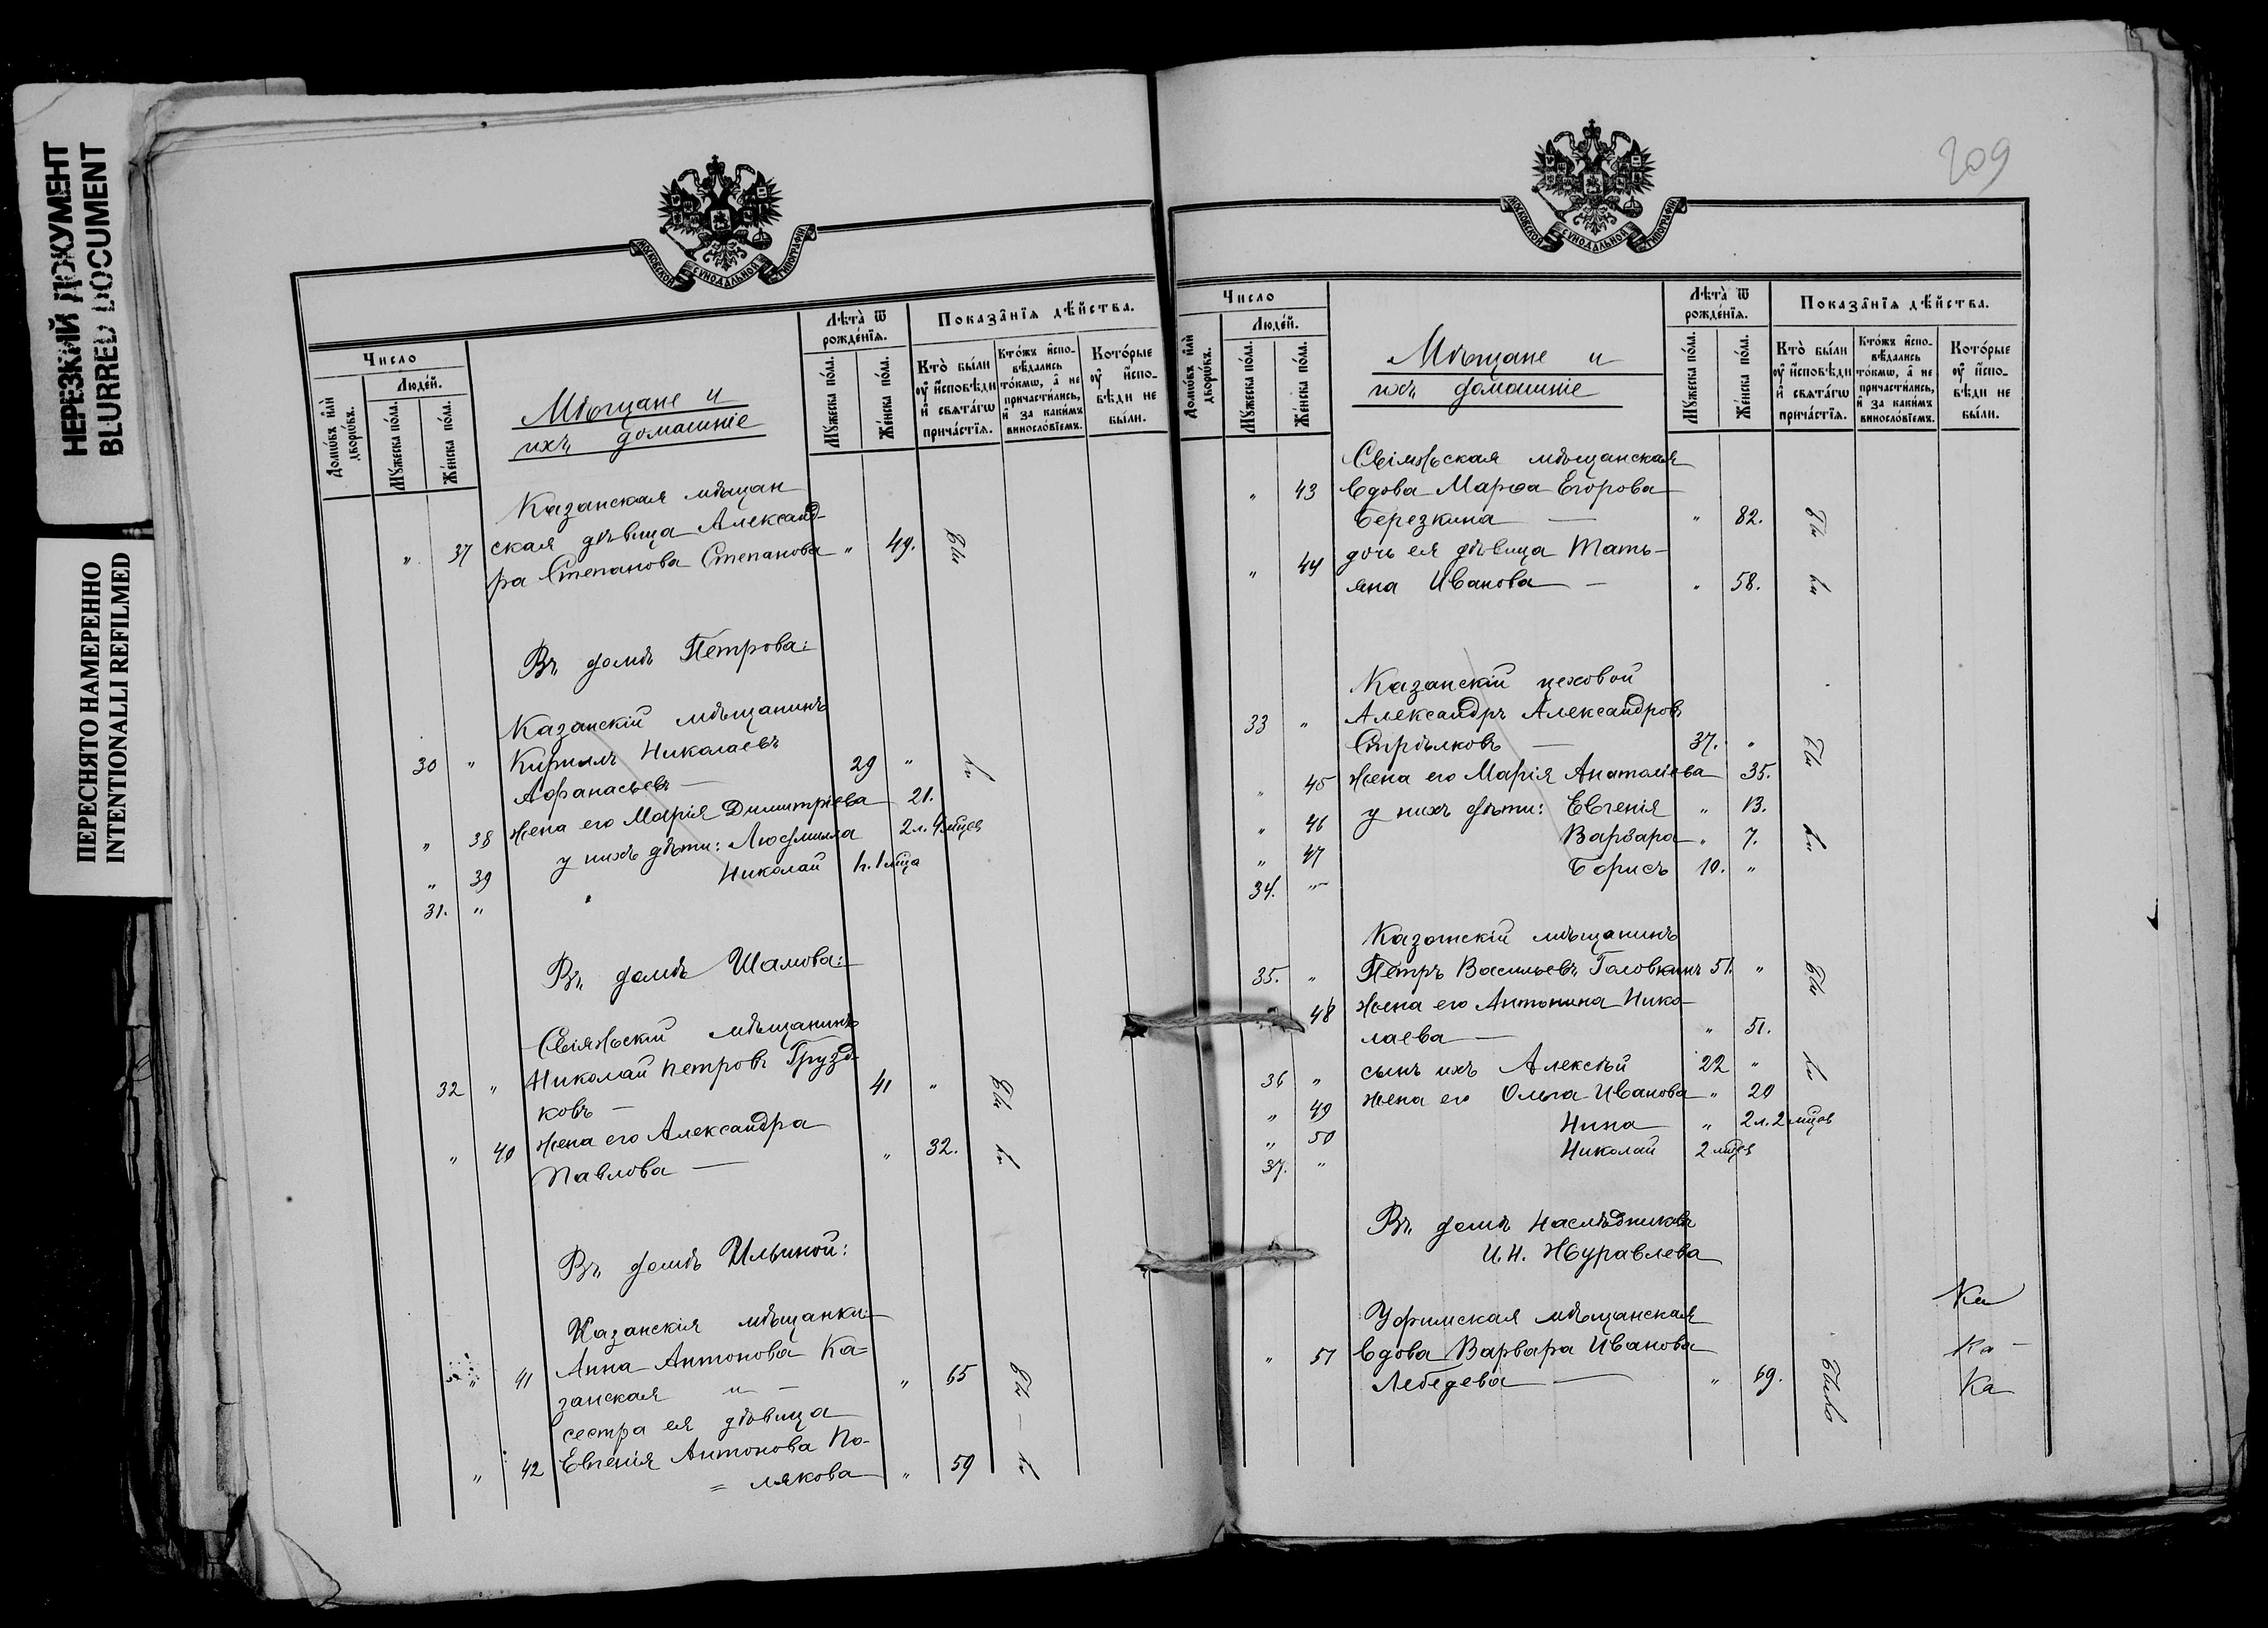 НЕРЕЗКИЙ ДОКУМЕНТ
BLURRED DOCUMENT
ПЕРЕСНЯТО НАМЕРЕННО
INTENTIONALLI REFILMED
МОСКОВСКОЙ СѴНОДАЛЬНОЙ ТИПОГРАФІИ
Число
Домѡвъ и҆лѝ дворѡ́въ.
Люде́й.
Мꙋ́жеска по́ла.
Же́нска по́ла.
Мѣщане и
ихъ домашніе
Лѣ́та ѿ рожде́нїѧ.
Мꙋ́жеска по́ла.
Же́нска по́ла.
Показа̑нїѧ дѣ́йства.
Кто̀ бы́ли оу҆ и҆сповѣ́ди и҆ свѧта́гѡ прича́стїѧ.
Кто́жъ и҆спо-вѣ́дались то́кмѡ, а҆ не причасти́лись, и҆ за каки́мъ винослові́емъ.
Кото́рые оу҆ и҆спо-вѣ́ди не бы́ли.
Казанская мѣщан
" 37 ская дѣвица Александ-
ра Степанова Степанова " 49. бы
Въ домѣ Петрова:
Казанскій мѣщанинъ
30 " Кириллъ Николаевъ
Афанасьевъ — 29 "
" 38 жена его Марія Димитріева 21.
" 39 у нихъ дѣти: Людмила 2 л. 4 мцев
31. " Николай 1 г. 1 мца
Въ домѣ Шамова:
Свіяжскій мѣщанинъ
32 " Николай Петровъ Грузд-
ковъ — 41 " бы
" 40 жена его Александра
Павлова — " 32. ли
Въ домѣ Ильиной:
Казанскія мѣщанки:
" 41 Анна Антонова Ка=
занская и — " 65 бы
сестра ея дѣвица
" 42 Евгенія Антонова По-
= лякова " 59 ли
209
МОСКОВСКОЙ СѴНОДАЛЬНОЙ ТИПОГРАФІИ
Число
Домѡвъ и҆лѝ дворѡ́въ.
Люде́й.
Мꙋ́жеска по́ла.
Же́нска по́ла.
Мѣщане и
ихъ домашніе
Лѣ́та ѿ рожде́нїѧ.
Мꙋ́жеска по́ла.
Же́нска по́ла.
Показа̑нїѧ дѣ́йства.
Кто̀ бы́ли оу҆ и҆сповѣ́ди и҆ свѧта́гѡ прича́стїѧ.
Кто́жъ и҆спо-вѣ́дались то́кмѡ, а҆ не причасти́лись, и҆ за каки́мъ винослові́емъ.
Кото́рые оу҆ и҆спо-вѣ́ди не бы́ли.
Свіяжская мѣщанская
" 43 вдова Марѳа Егорова
Березкина — " 82. бы
" 44 дочь ея дѣвица Тать-
яна Иванова — " 58. ли
Казанскій цеховой
33 " Александръ Александровъ
Стрѣлковъ — 37. " бы
" 45 жена его Марія Анатоліева 35.
" 46 у нихъ дѣти: Евгенія " 13.
" 47 Варвара " 7. ли
34. " Борисъ 10. "
Казанскій мѣщанинъ
35. " Петръ Васильевъ Головкинъ 51. " бы
48 жена его Антонина Нико-
лаева — " 51.
36 " сынъ ихъ Алексѣй 22 " ли
" 49 жена его Ольга Иванова " 20
" 50 Нина " 2 л. 2 мцев
37. " Николай 2 мцев
Въ домѣ наслѣдниковъ
И.Н. Журавлева
Уфимская мѣщанская
" 51 вдова Варвара Иванова
Лебедева — " 69. была
Ка
Ка —
Ка